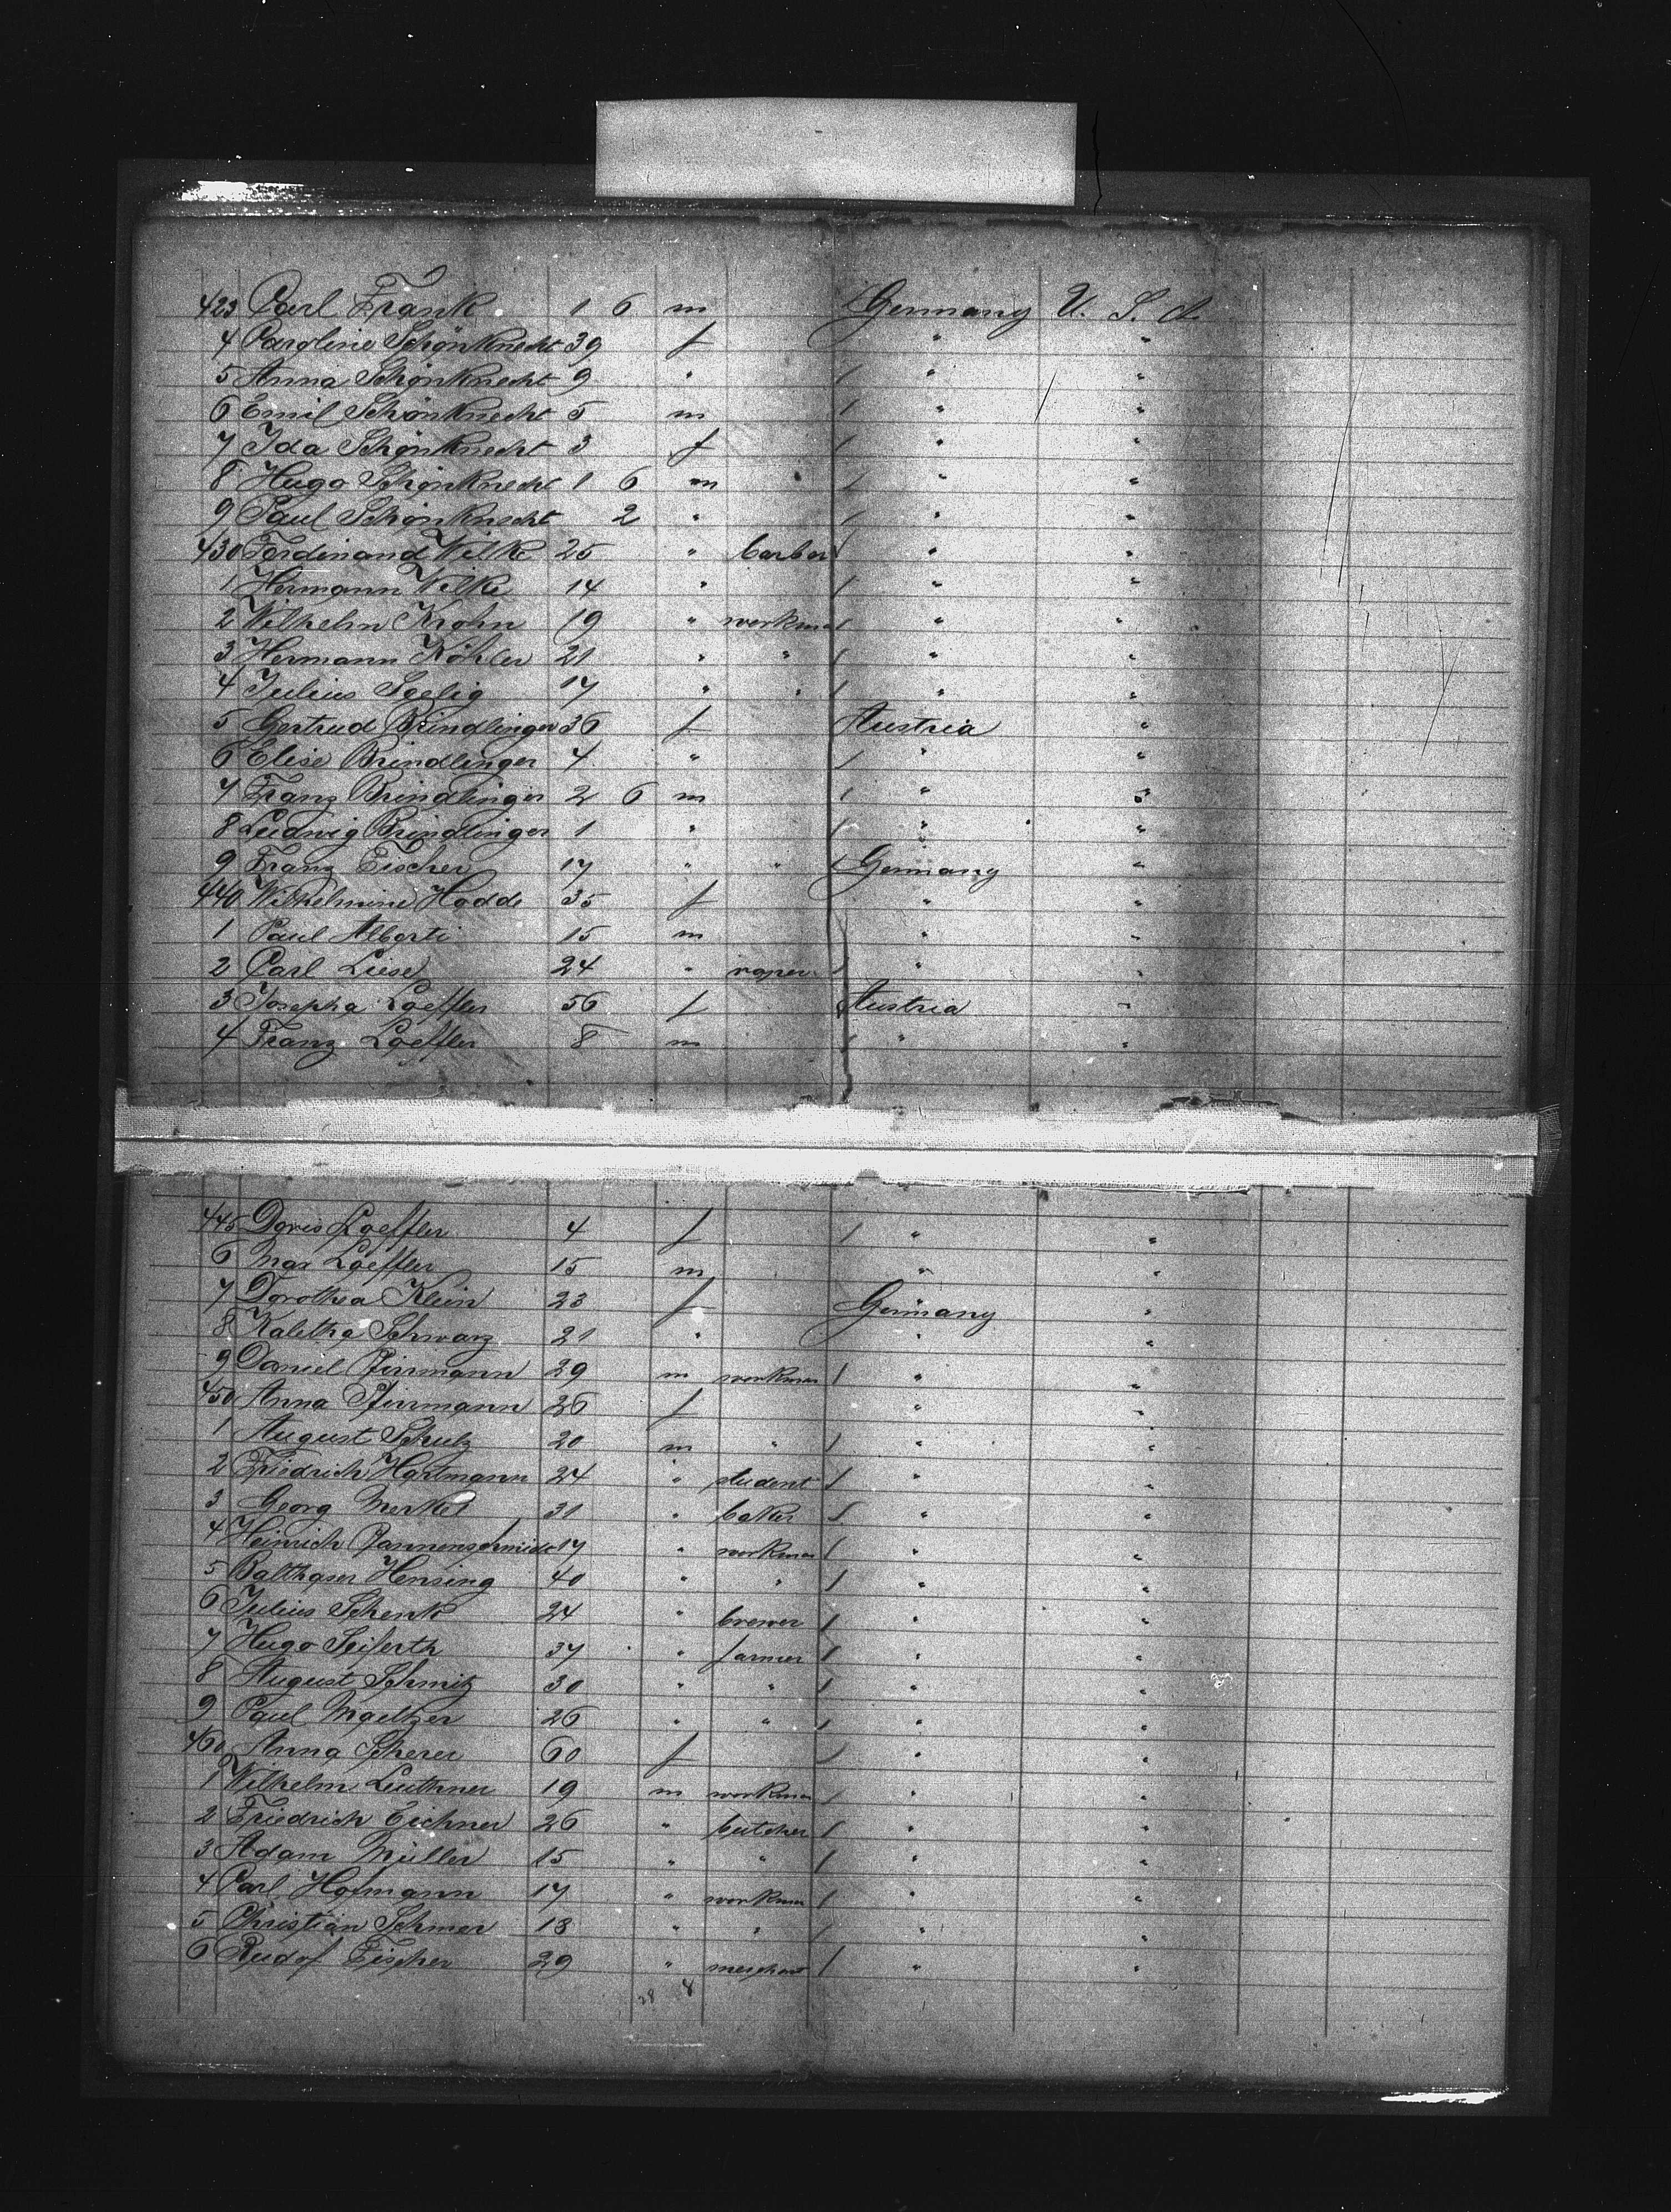 423 Carl Frank 1 6 m Germany U. S. A.
4 Caroline Schönknecht 39 f " "
5 Anna Schönknecht 9 " / " "
6 Emil Schönknecht 5 m / " "
7 Ida Schönknecht 3 f / " "
8 Hugo Schönknecht 1 6 m / " "
9 Paul Schönknecht 2 " / " "
430 Ferdinand Wilke 25 " barber / " "
1 Hermann Wilke 14 " / " "
2 Wilhelm Krohn 19 " workman / " "
3 Hermann Köhler 21 " " / " "
4 Julius Seelig 17 " " / " "
5 Gertrud Brindlinger 36 f Austria "
6 Elise Brindlinger 4 " / " "
7 Franz Brindlinger 2 6 m / " "
8 Ludwig Brindlinger 1 " / " "
9 Franz Fischer 17 " " / Germany "
440 Wilhelmine Hadde 35 f " "
1 Paul Alberti 15 m " "
2 Carl Liese 24 " / " "
3 Josepha Loeffler 56 f Austria "
4 Franz Loeffler 8 m / " "
445 Doris Loeffler 4 f / " "
6 Max Loeffler 15 m " "
7 Dorothea Klein 23 f Germany "
8 Kaletha Schwarz 21 " " "
9 Daniel Pfirrmann 29 m workman / " "
450 Anna Pfirrmann 26 f " "
1 August Schulz 20 m " / " "
2 Friedrich Hartmann 24 " student / " "
3 Georg Merkel 31 " baker / " "
4 Heinrich 17 " workman / " "
5 Balthaser Hensing 40 " " / " "
6 Julius Schenk 24 " brewer / " "
7 Hugo Seiferth 37 " farmer / " "
8 August Schmitz 30 " " / " "
9 Paul Maelzer 26 " " / " "
460 Anna Scherer 60 f / " "
1 Wilhelm Leuthner 19 m workman / " "
2 Friedrich Eichner 26 " butcher / " "
3 Adam Müller 15 " " / " "
4 Carl Hofmann 17 " workman / " "
5 Christian Schmer 18 " " / " "
6 Rudof Fischer 29 " merchant / " "
28 8